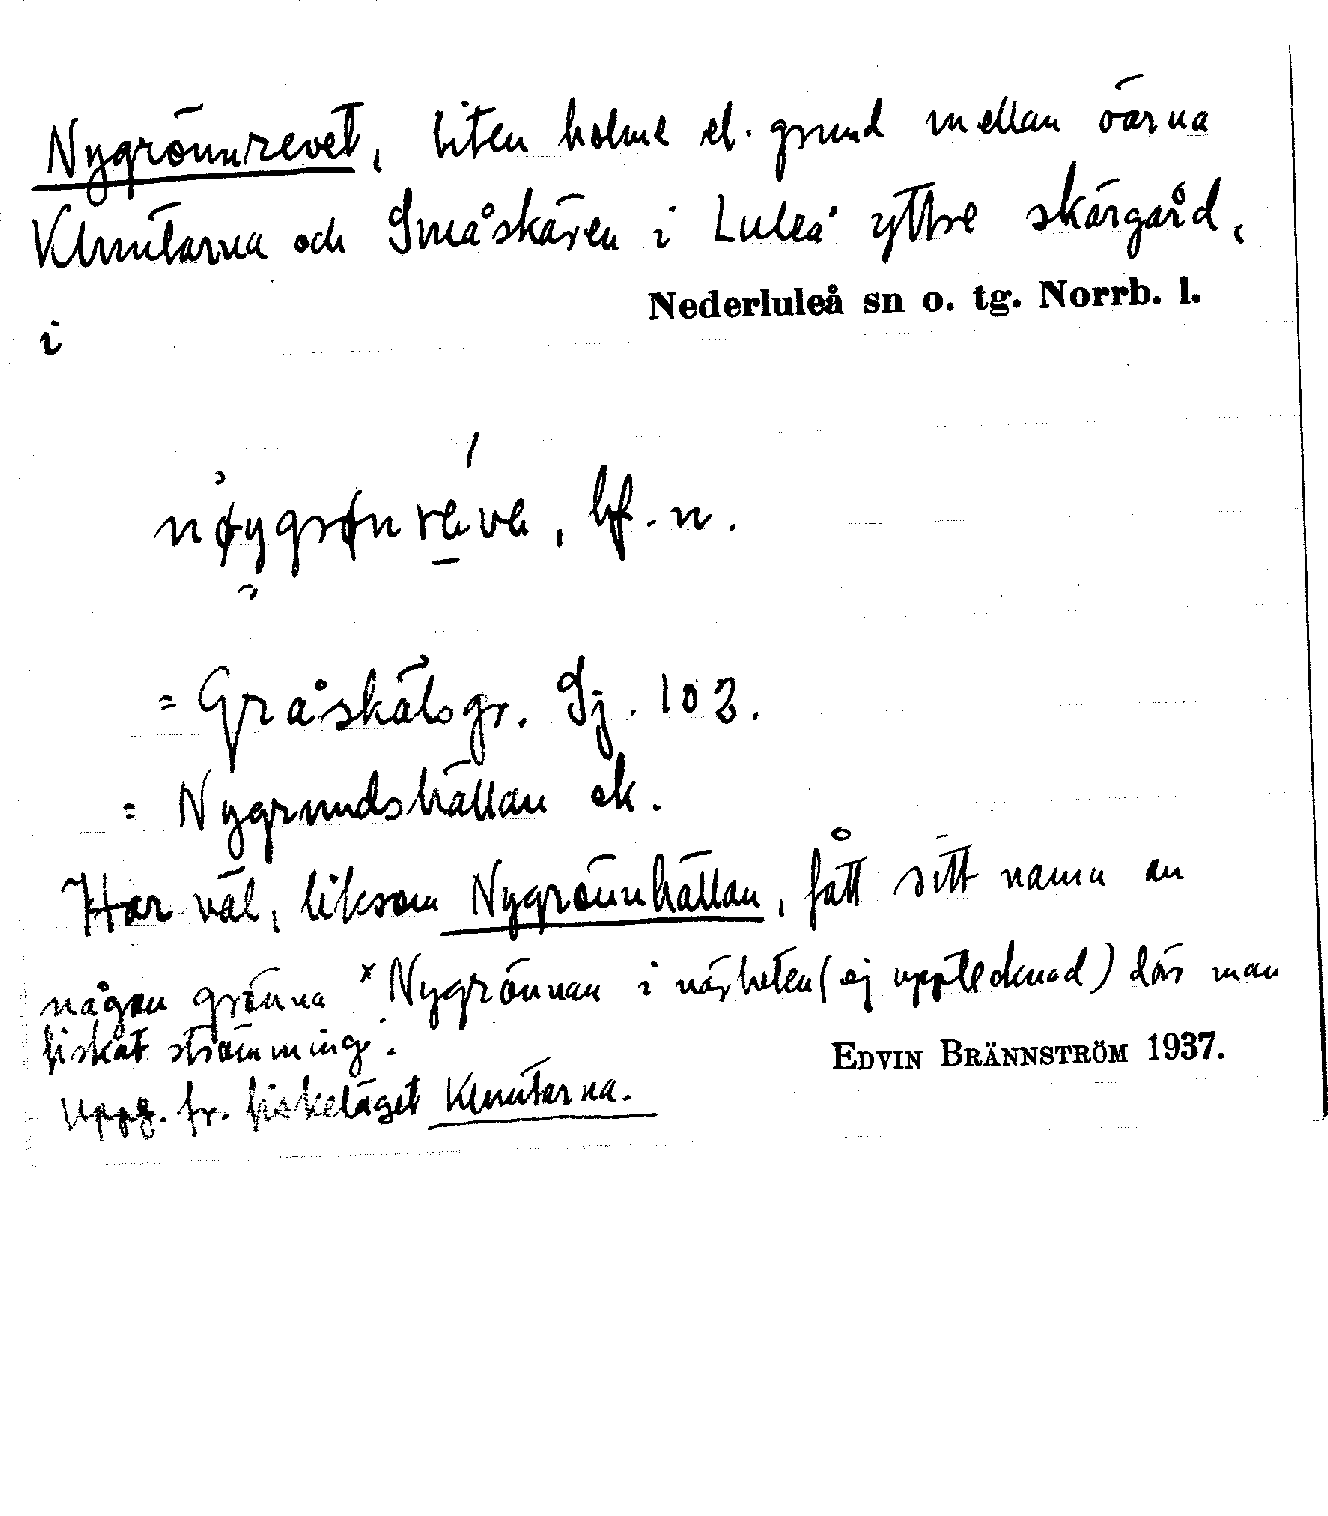 Nygrönnrevet, liten holme el. grund mellan öarna
Klnutarna och Småskären i Luleå yttre skärgård,
Nederluleå sn o. tg. Norrb. l.
i
bf. n.
= Gråskälsgr. Sj. 103.
= Nygrundshällan ek.
Har väl, liksom Nygrönnhällan, fått sitt namn av
någon grönna *Nygrönnan i närheten (ej upptecknad) där man
fiskat strömming.
EDVIN BRÄNNSTRÖM 1937.
Uppg. fr. fiskeläget Klnutarna.